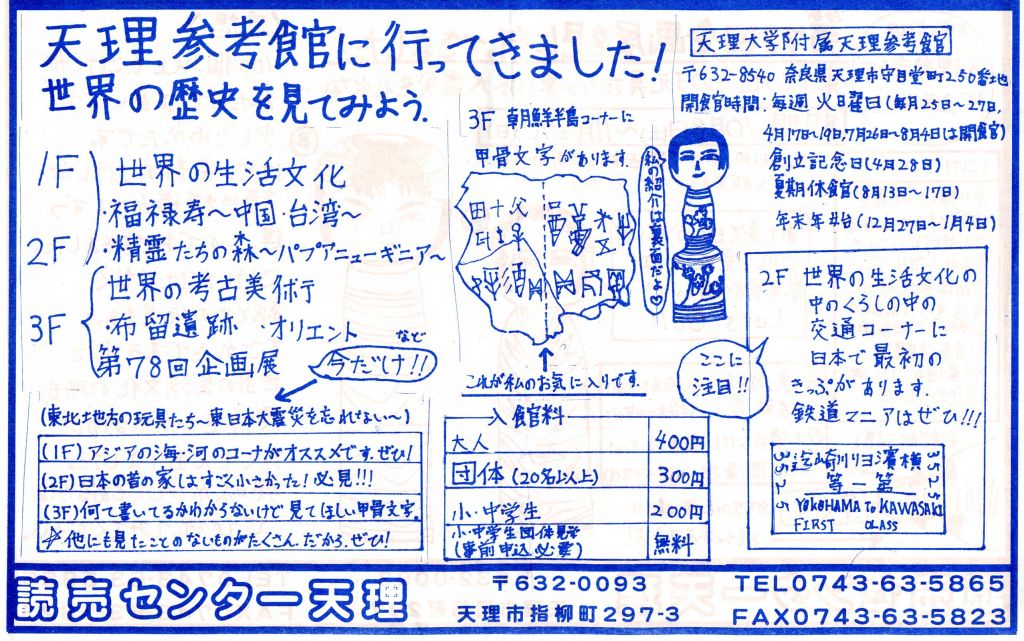 天理参考館に行ってきました!
世界の歴史を見てみよう.
1F
2F
3F
世界の生活文化
・福禄寿〜中国・台湾〜
・精霊たちの森〜パプアニューギニア〜
世界の考古美術
・布留遺跡 ・オリエント など
第78回企画展
今だけ!!
(東北地方の玩具たち〜東日本大震災を忘れない〜)
(1F) アジアの海・河のコーナがオススメです.ぜひ!
(2F)日本の昔の家はすごく小さかった!必見!!!
(3F)何て書いてるかわからないけど見てほしい甲骨文字.
☆他にも見たことのないものがたくさん.だから、ぜひ!
3F 朝鮮半島コーナーに
甲骨文字があります.
私の紹介は裏面だよ♡
これが私のお気に入りです.
入館料
大人 400円
団体(20名以上) 300円
小・中学生 200円
小・中学生団体見学
(事前申込必要) 無料
天理大学附属天理参考館
〒632-8540 奈良県天理市守目堂町250番地
開館時間:毎週 火曜日(毎月25日〜27日,
4月17日〜19日,7月26日〜8月4日は開館)
創立記念日(4月28日)
夏期休館(8月13日〜17日)
年末年始(12月27日〜1月4日)
ここに
注目!!
2F 世界の生活文化の
中のくらしの中の
交通コーナーに
日本で最初の
きっぷがあります.
鉄道マニアはぜひ!!!
迄崎川リヨ濱横
等一第
YOKOHAMA TO KAWASAKI
FIRST CLASS
読売センター天理
〒632-0093
天理市指柳町297-3
TEL0743-63-5865
FAX0743-63-5823